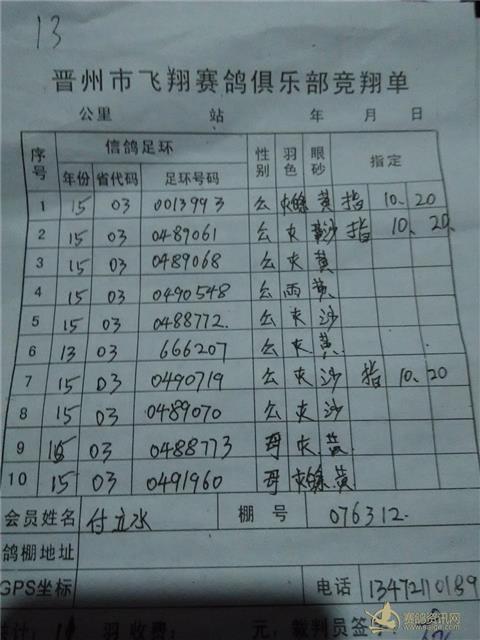 13
晋州市飞翔赛鸽俱乐部竞翔单
公里 站 年 月 日
序号 信鸽足环 性别 羽色 眼砂 指定
年份 省代码 足环号码
1 15 03 0013993 公 灰 黄 指 10、20
2 15 03 0489061 公 灰 沙 指 10、20
3 15 03 0489068 公 灰 黄
4 15 03 0490548 公 雨 黄
5 15 03 0488772 公 灰 沙
6 13 03 666207 公 灰 黄
7 15 03 0490719 公 灰 沙 指 10、20
8 15 03 0489070 公 灰 沙
9 15 03 0488773 母 灰 黄
10 15 03 0491960 母 灰 黄
会员姓名 付立水 棚号 076312
鸽棚地址
GPS坐标 电话 13472110189
合计: 羽 收费 元, 裁判员签字
赛鸽资讯网
www.saige.com